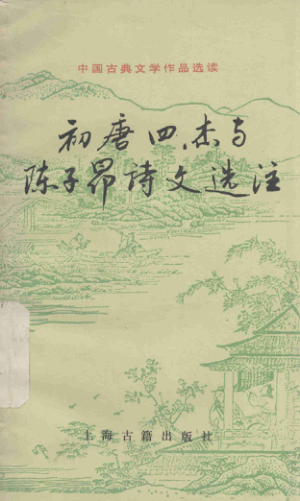 中国古典文学作品选读
初唐四杰与
陈子昂诗文选注
上海古籍出版社